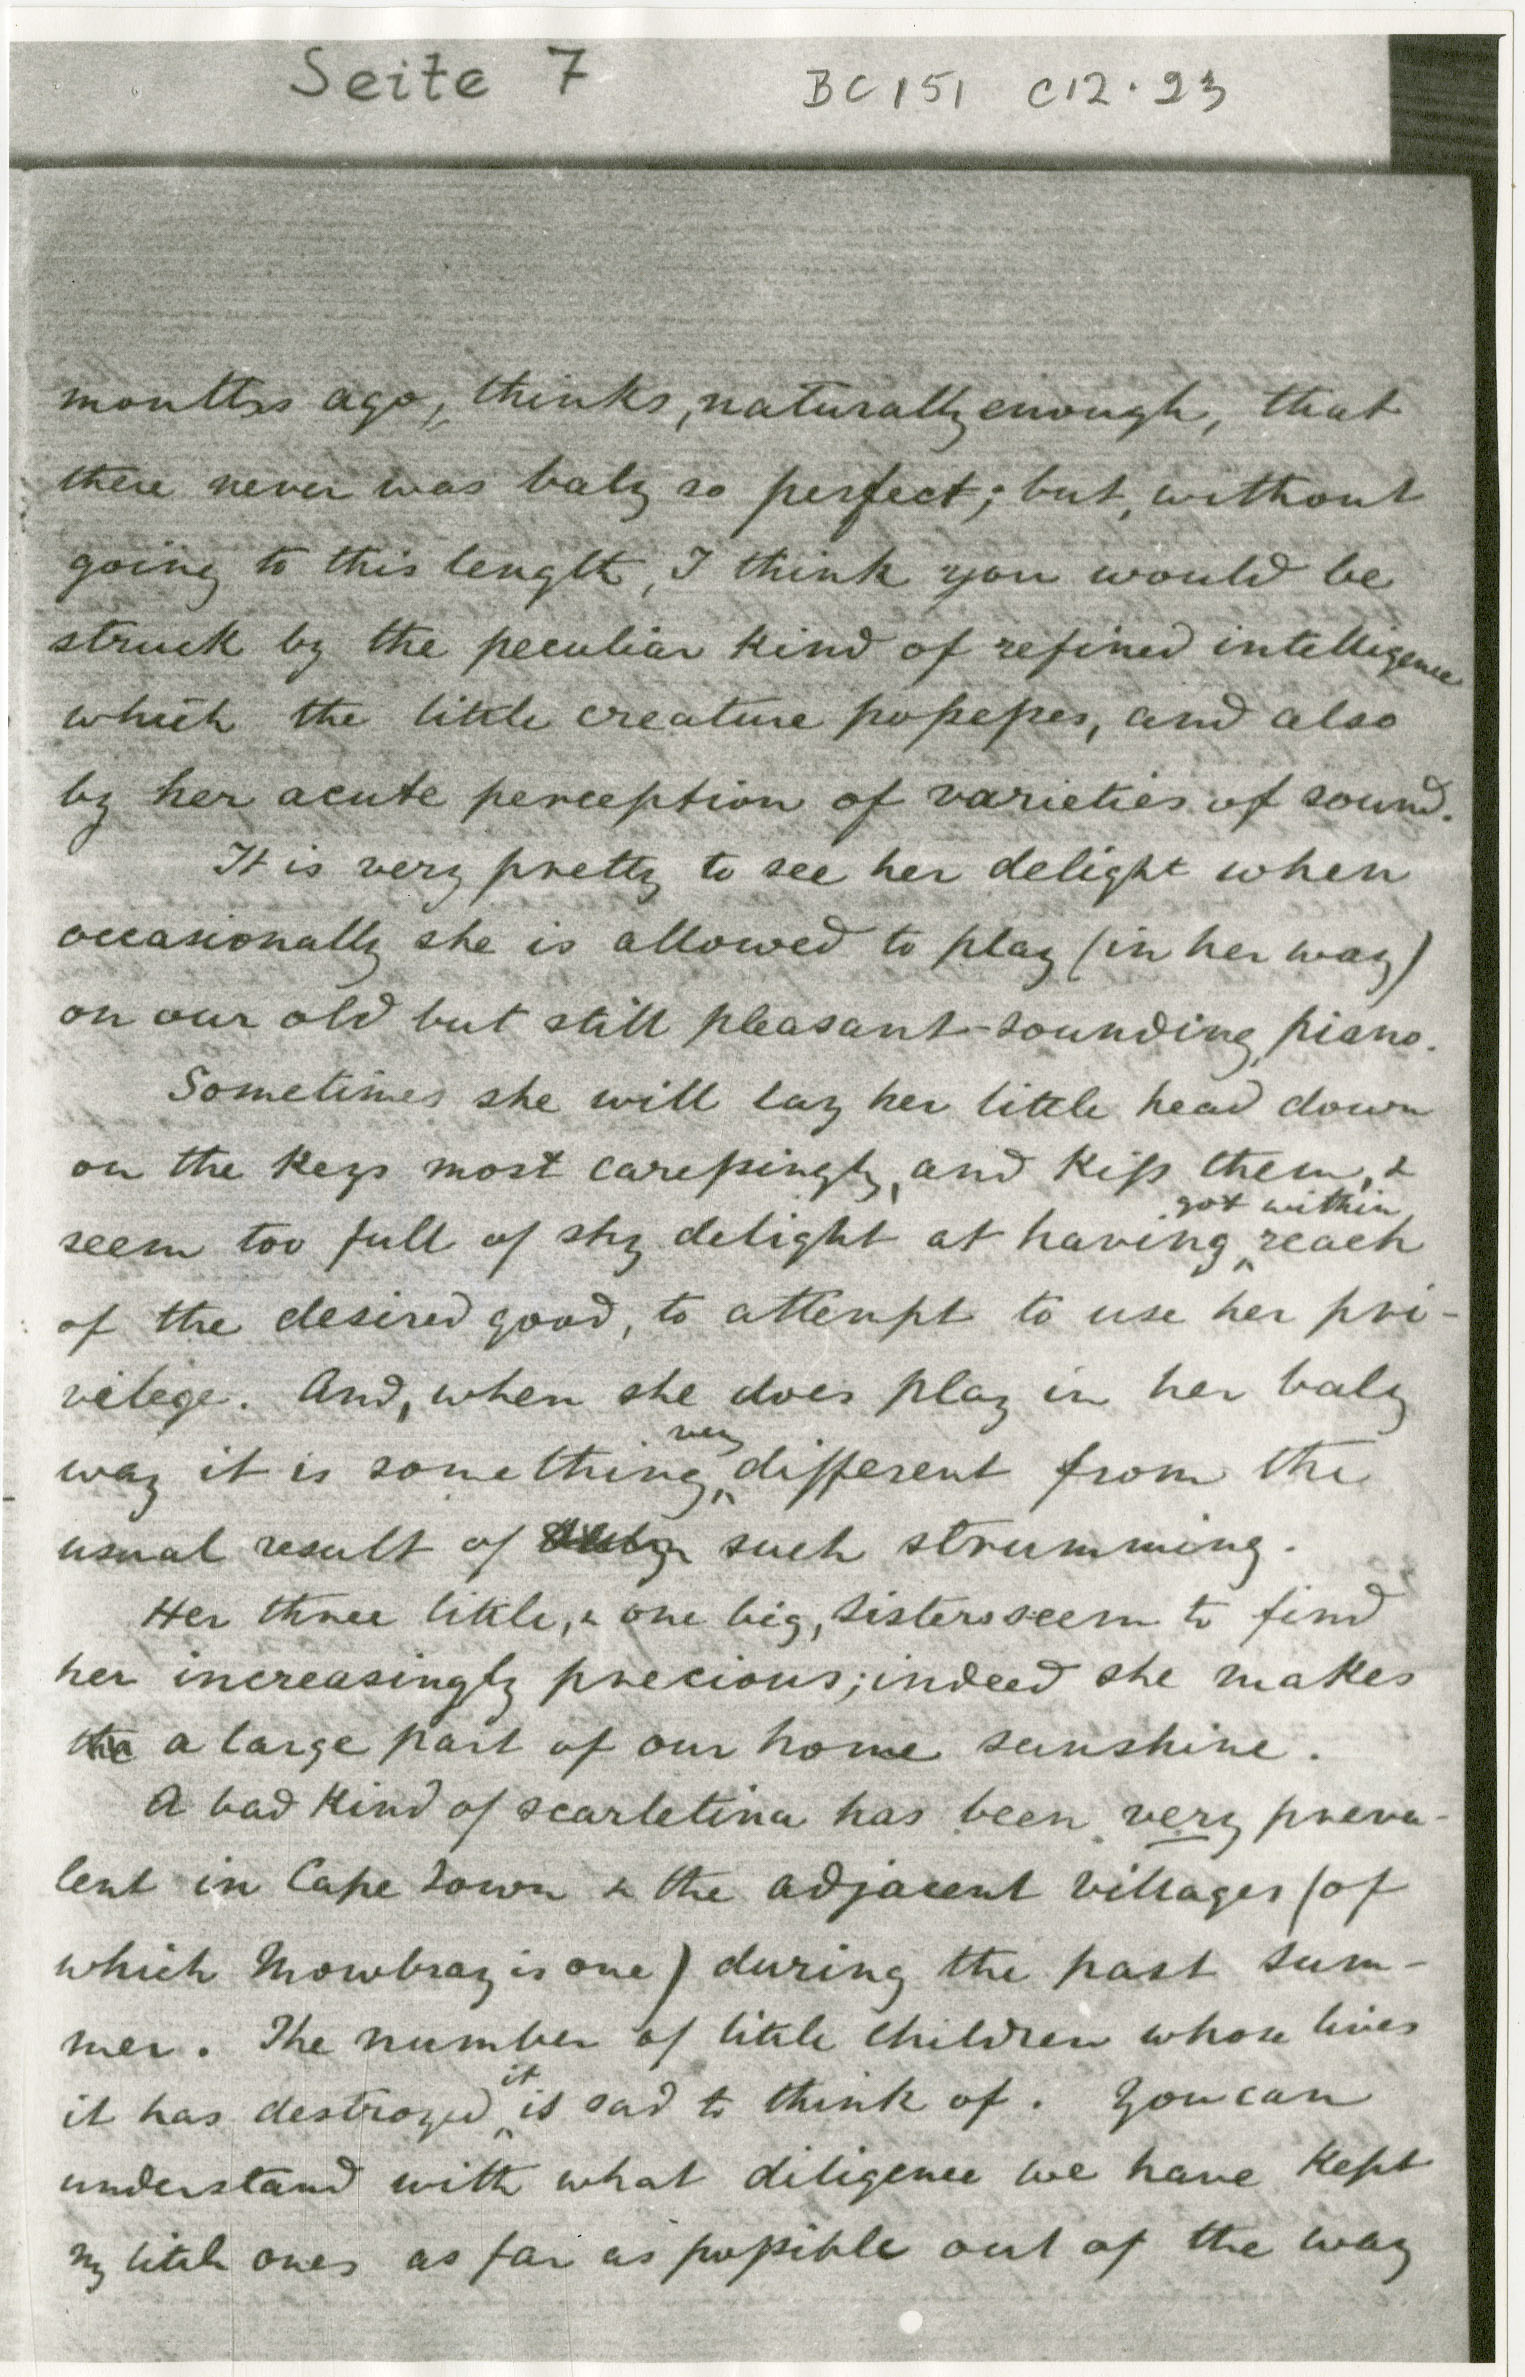 Seite 7 BC151 C12.23
months ago, thinks, naturally enough, that
there never was baby so perfect; but, without
going to this length, I think you would be
struck by the peculiar kind of refined intelligence
which the little creature possesses, and also
by her acute perception of varieties of sound.
It is very pretty to see her delight when
occasionally she is allowed to play (in her way)
on our old but still pleasant-sounding piano.
Sometimes she will lay her little head down
on the keys most caressingly, and kiss them, &
got within
seem too full of shy delight at having reach
of the desired good, to attempt to use her pri-
vilege. And, when she does play in her baby
very
way it is something different from the
usual result of such strumming.
Her three little, & one big, sisters seem to find
her increasingly precious; indeed she makes
a large part of our home sunshine.
A bad kind of scarletina has been very preva-
lent in Cape Town & the adjacent villages (of
which Mowbray is one) during the past sum-
mer. The number of little children whose lives
it
it has destroyed is sad to think of. You can
understand with what diligence we have kept
my little ones as far as possible out of the way